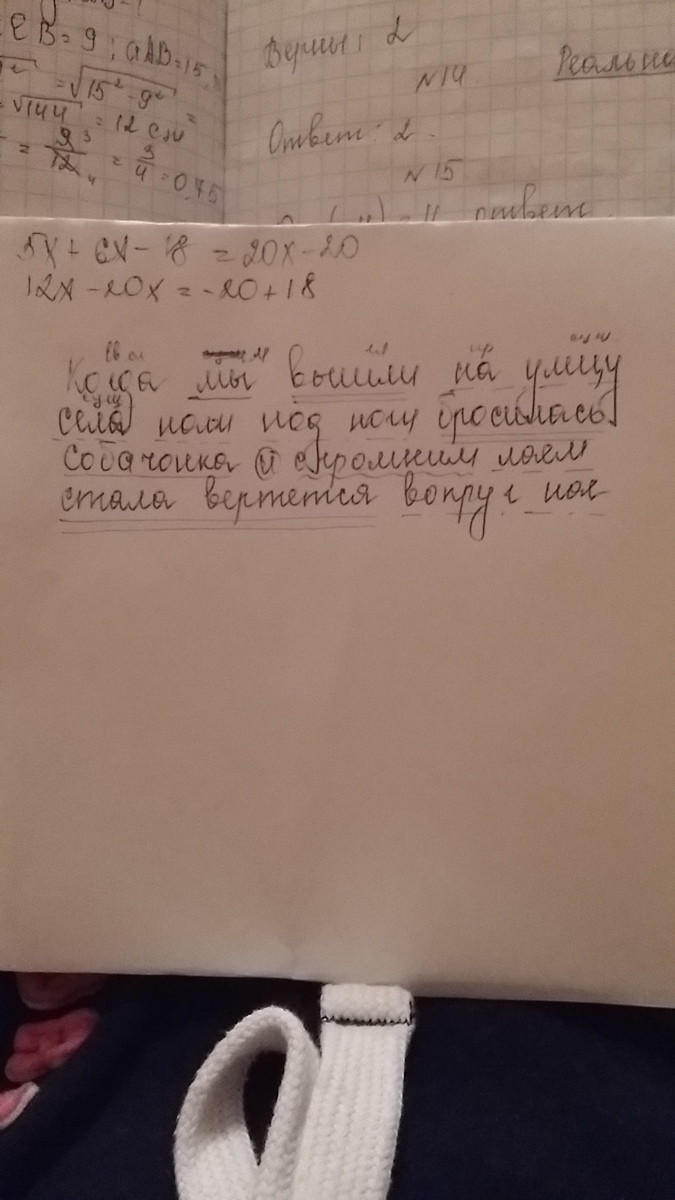 EB = 9; а AB = 15,
= √15² - 9² =
= √144 = 12 см
= 9/12 = 3/4 = 0,75
Верны: 2
N14
Реальн
Ответ: 2.
N15
ответ
5x + 6x - 18 = 20x - 20
12x - 20x = -20 + 18
Когда мы вышли на улицу
села нам под ноги бросилась
собачонка и с громким лаем
стала вертется вокруг нас